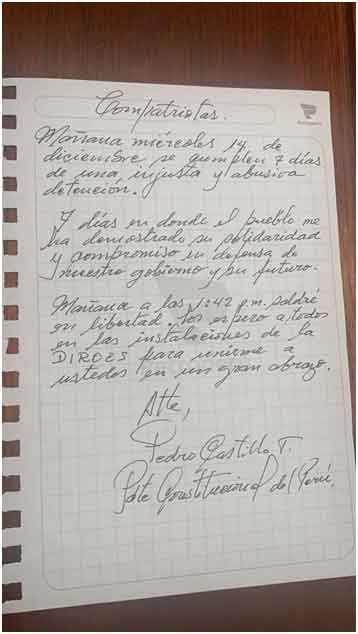 Compatriotas.
Mañana miércoles 14 de
diciembre se cumplen 7 días
de una injusta y abusiva
detención.
7 días en donde el pueblo me
ha demostrado su solidaridad
y compromiso en defensa de
nuestro gobierno y su futuro.
Mañana a las 1:42 p.m. saldré
en libertad. Los espero a todos
en las instalaciones de la
DIROES para unirme a
ustedes en un gran abrazo.
Atte,
Pedro Castillo T.
Pdte Constitucional del Perú.